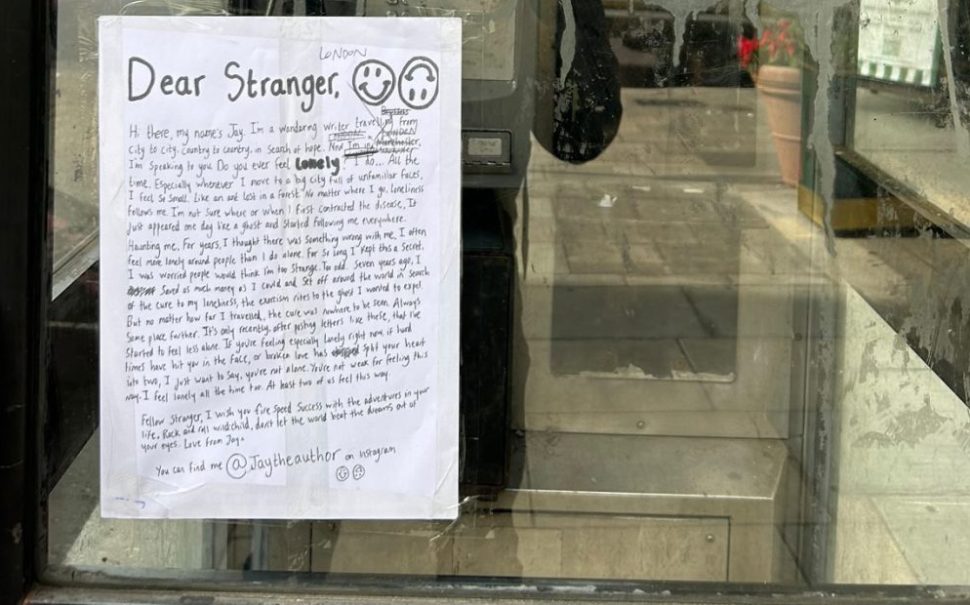 LONDON
Dear Stranger,
Hi there, my name's Jay. I'm a wandering writer travelling from
city to city, country to country, in search of hope. Now I'm in Manchester,
I'm speaking to you. Do you ever feel Lonely? I do... All the
time. Especially whenever I move to a big city full of unfamiliar faces,
I feel so small. Like an ant lost in a forest. No matter where I go, loneliness
follows me. I'm not sure where or when I first contracted the disease, It
just appeared one day like a ghost and started following me everywhere.
Haunting me. For years, I thought there was something wrong with me. I often
feel more lonely around people than I do alone. For so long I kept this a secret.
I was worried people would think I'm too strange. Too odd. Seven years ago, I
saved as much money as I could and set off around the world in search
of the cure to my loneliness, the exorcism rites to the ghost I wanted to expel.
But no matter how far I travelled, the cure was nowhere to be seen. Always
some place farther. It's only recently, after posting letters like these, that I've
started to feel less alone. If you're feeling especially lonely right now, if hard
times have hit you in the face, or broken love has split your heart
into two, I just want to say, you're not alone. You're not weak for feeling this
way. I feel lonely all the time too. At least two of us feel this way.
Fellow stranger, I wish you fire speed success with the adventures in your
life. Rock and roll wildchild, don't let the world beat the dreams out of
your eyes. Love from Jay.
You can find me @Jaytheauthor on instagram